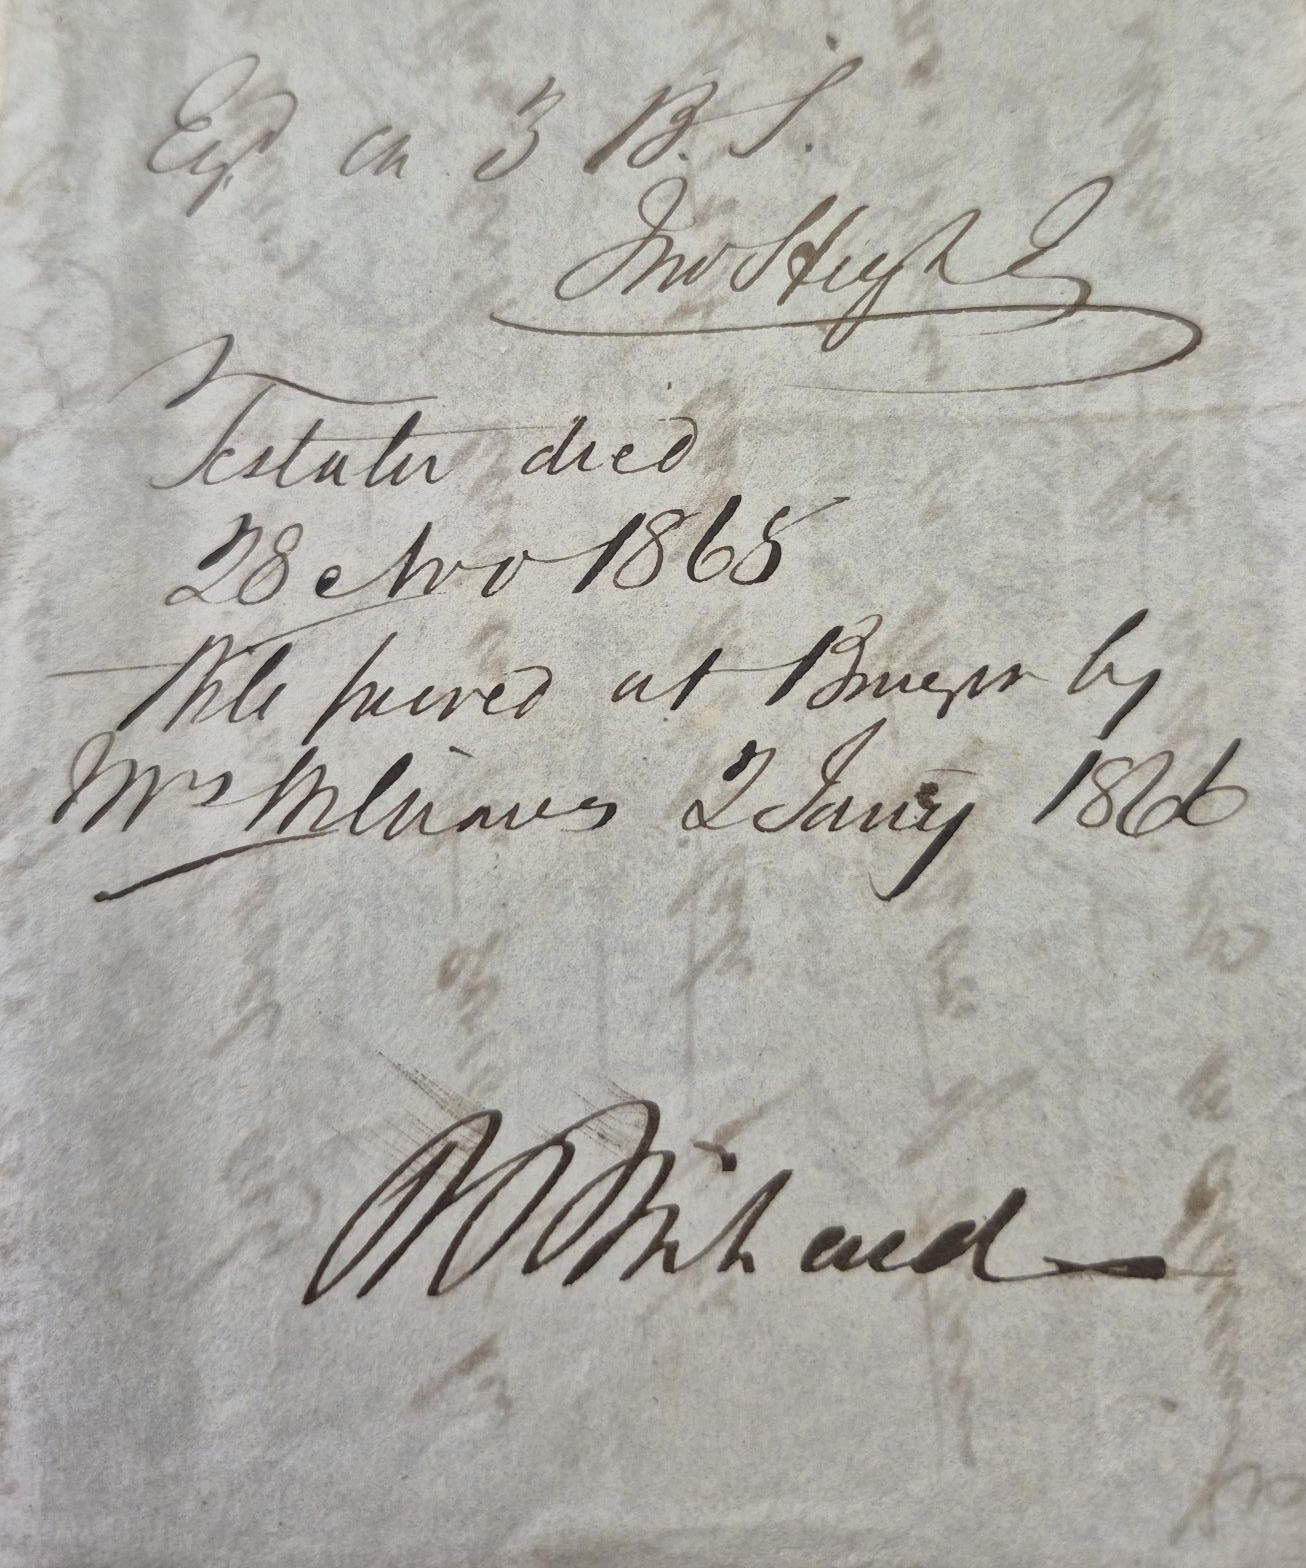 Exd on 3 B. S.
Jno Hugh
Testator died
28 Nov 1865
Will proved at Bangor by
Mrs Williams 2 Jany 1866